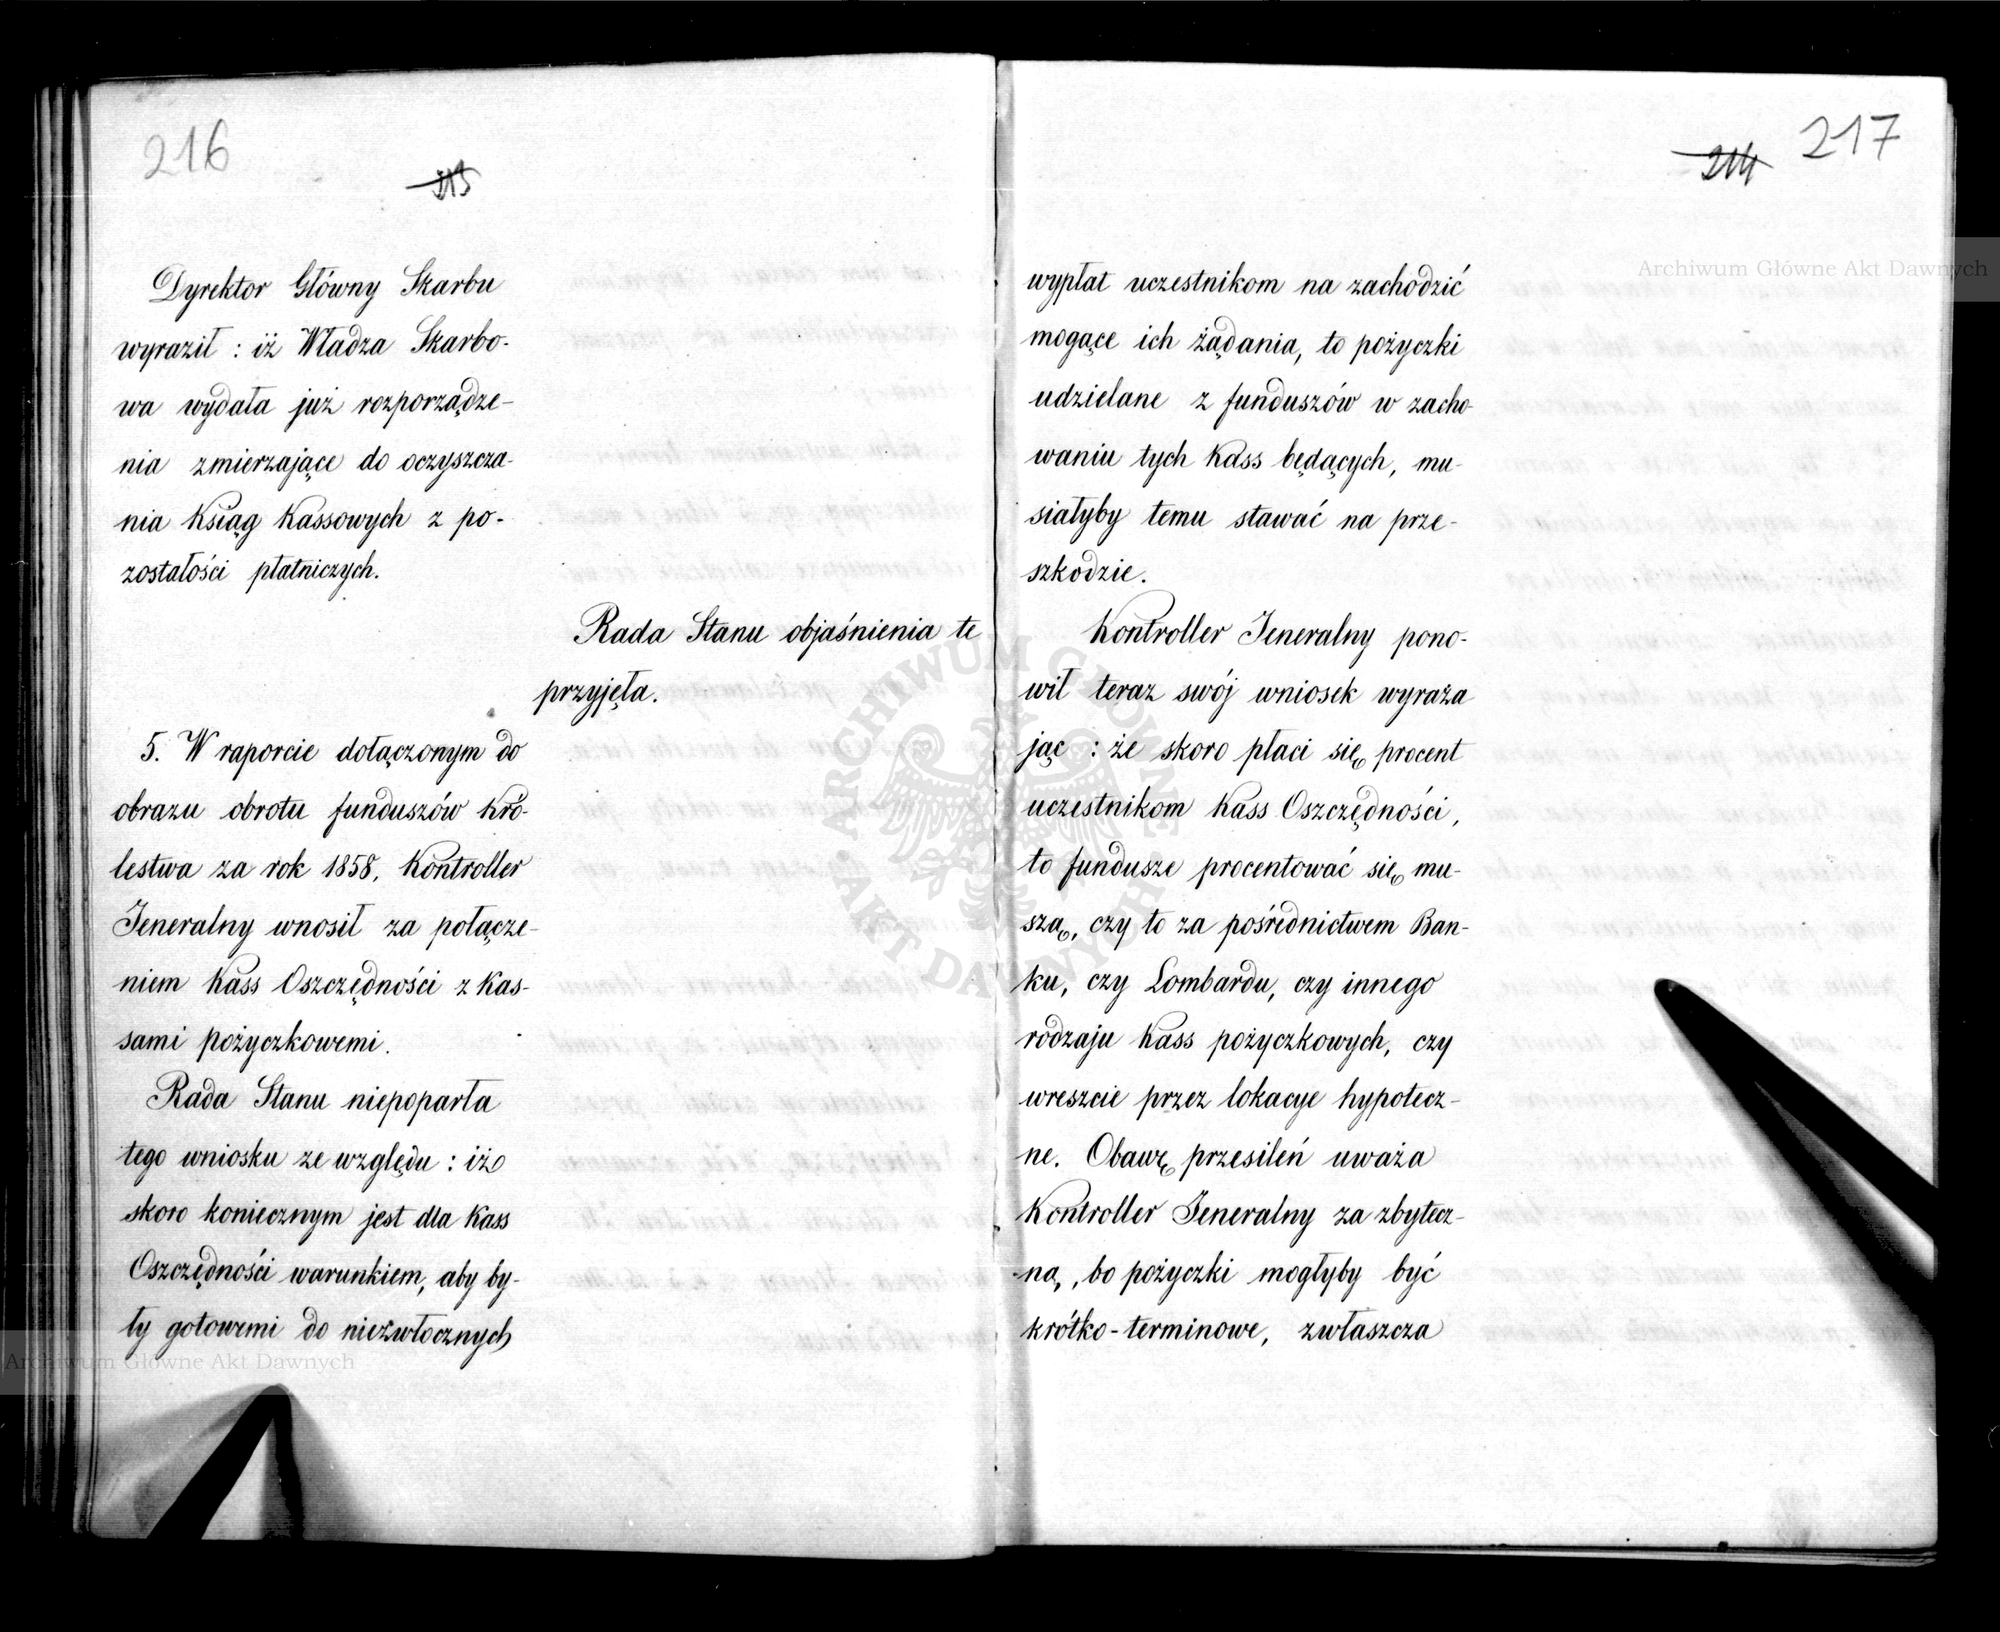 216
Dyrektor Główny Skarbu
wyraził : iż Władza Skarbo-
wa wydała już rozporządze-
nia zmierzające do oczyszcza-
nia Ksiąg Kassowych z po-
zostałości płatniczych.
Rada Stanu objaśnienia te
przyjęła.
5. W raporcie dołączonym do
obrazu obrotu funduszów Kró-
lestwa za rok 1858, Kontroller
Jeneralny wnosił za połącze-
niem Kass Oszczędności z Kas-
sami pożyczkowemi.
Rada Stanu niepoparła
tego wniosku ze względu : iż
skoro koniecznym jest dla Kass
Oszczędności warunkiem, aby by-
ły gotowemi do niezwłocznych
217
214
wypłat uczestnikom na zachodzić
mogące ich żądania, to pożyczki
udzielane z funduszów w zacho-
waniu tych Kass będących, mu-
siałyby temu stawać na prze-
szkodzie.
Kontroller Jeneralny pono-
wił teraz swój wniosek wyraża
jąc : że skoro płaci się procent
uczestnikom Kass Oszczędności,
to fundusze procentować się mu-
szą, czy to za pośrednictwem Ban-
ku, czy Lombardu, czy innego
rodzaju Kass pożyczkowych, czy
wreszcie przez lokacye hypotecz-
ne. Obawę przesileń uważa
Kontroller Jeneralny za zbytecz-
ną, bo pożyczki mogłyby być
krótko-terminowe, zwłaszcza
Archiwum Główne Akt Dawnych
Archiwum Główne Akt Dawnych
ARCHIWUM GŁÓWNE AKT DAWNYCH